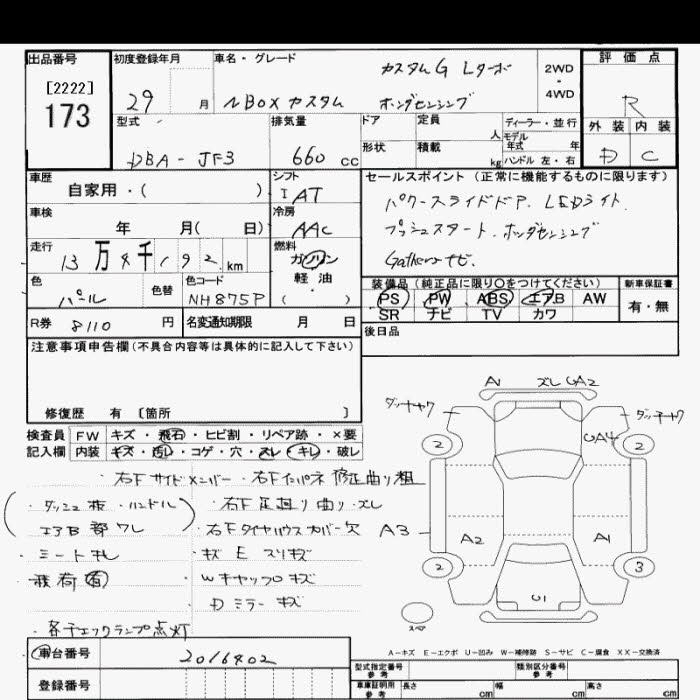 出品番号
[2222]
173
初度登録年月
29 月
車名・グレード
カスタムG Lターボ
NBOXカスタム ホンダセンシング
2WD
・
4WD
評価点
R
外装 内装
D C
型式
DBA-JF3
排気量
660 cc
ドア
形状
定員
人
積載
kg
ディーラー・並行
モデル
年式 年
ハンドル 左・右
車歴
自家用・( )
シフト
I AT
車検
年 月( 日)
冷房
AAC
走行
13万4千192km
燃料
ガソリン
軽・油
( )
色
パール
色替
色コード
NH875P
R券 8110 円
名変通知期限 月 日
セールスポイント(正常に機能するものに限ります)
パワースライドドア. LEDライト.
プッシュスタート. ホンダセンシング
Gathersナビ.
装備品(純正品に限り○をつけてください)
PS PW ABS エアB AW
SR ナビ TV カワ
新車保証書
有・無
後日品
注意事項申告欄(不具合内容等は具体的に記入して下さい)
修復歴 有〔箇所 〕
検査員 FW キズ・飛石・ヒビ割・リペア跡・×要
記入欄 内装 キズ・汚し・コゲ・穴・スレ・キレ・破レ
右Fサイドメンバー・右Fインパネ 修正曲り 粗
・ダッシュ板・ハンドル
エアB部ワレ
・右F足廻り曲り・ズレ
・右Fタイヤハウスカバー欠
・シート キレ
・キズ E スリキズ
・積荷有
・Wキャップ キズ
・Dミラー キズ
・各チェックランプ点灯
A1 ズレ UA2
ダッチャク
ダッチャク
UA4
2
2
A3
A2
A1
2
3
U1
スペア
A-キズ E-エクボ U-凹み W-補修跡 S-サビ C-腐食 XX-交換済
車台番号 2016402
登録番号
型式指定番号
参考
類別区分番号
参考
車庫証明用
参考
長さ cm
幅 cm
高さ cm